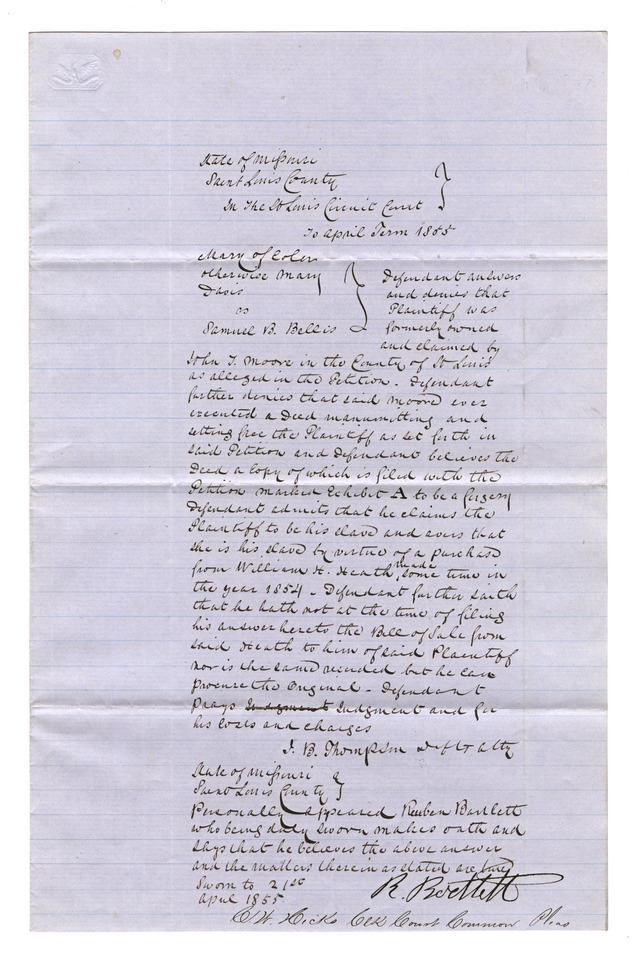 State of Missouri
Saint Louis County
In the St Louis Circuit Court
To April Term 1855
Mary of Color
otherwise Mary
Davis
vs
Samuel B. Bellis
Defendant answers
and denies that
Plaintiff was
formerly owned
and claimed by
John T. Moore in the County of St Louis
as alleged in the Petition. Defendant
further denies that said Moore ever
executed a Deed manumitting and
setting free the Plaintiff as set forth in
said Petition and Defendant believes the
Deed a Copy of which is filed with the
Petition marked Exhibit A to be a forgery
Defendant admits that he claims the
Plaintiff to be his slave and avers that
she is his slave by virtue of a purchase
from William H. Heath made some time in
the year 1854 - Defendant further saith
that he hath not at the time of filing
his answer hereto the Bill of Sale from
said Heath to him of said Plaintiff
nor is the same recorded but he can
procure the Original - Defendant
prays Judgment Judgment and for
his Costs and charges
J. B. Thompson Deft atty
State of Missouri
Saint Louis County
Personally appeared Reuben Bartlett
who being duly sworn makes oath and
says that he believes the above answer
and the matters therein as stated are true
Sworn to 21st
April 1855
R. Bartlett
Hicks Clk Court Common Pleas